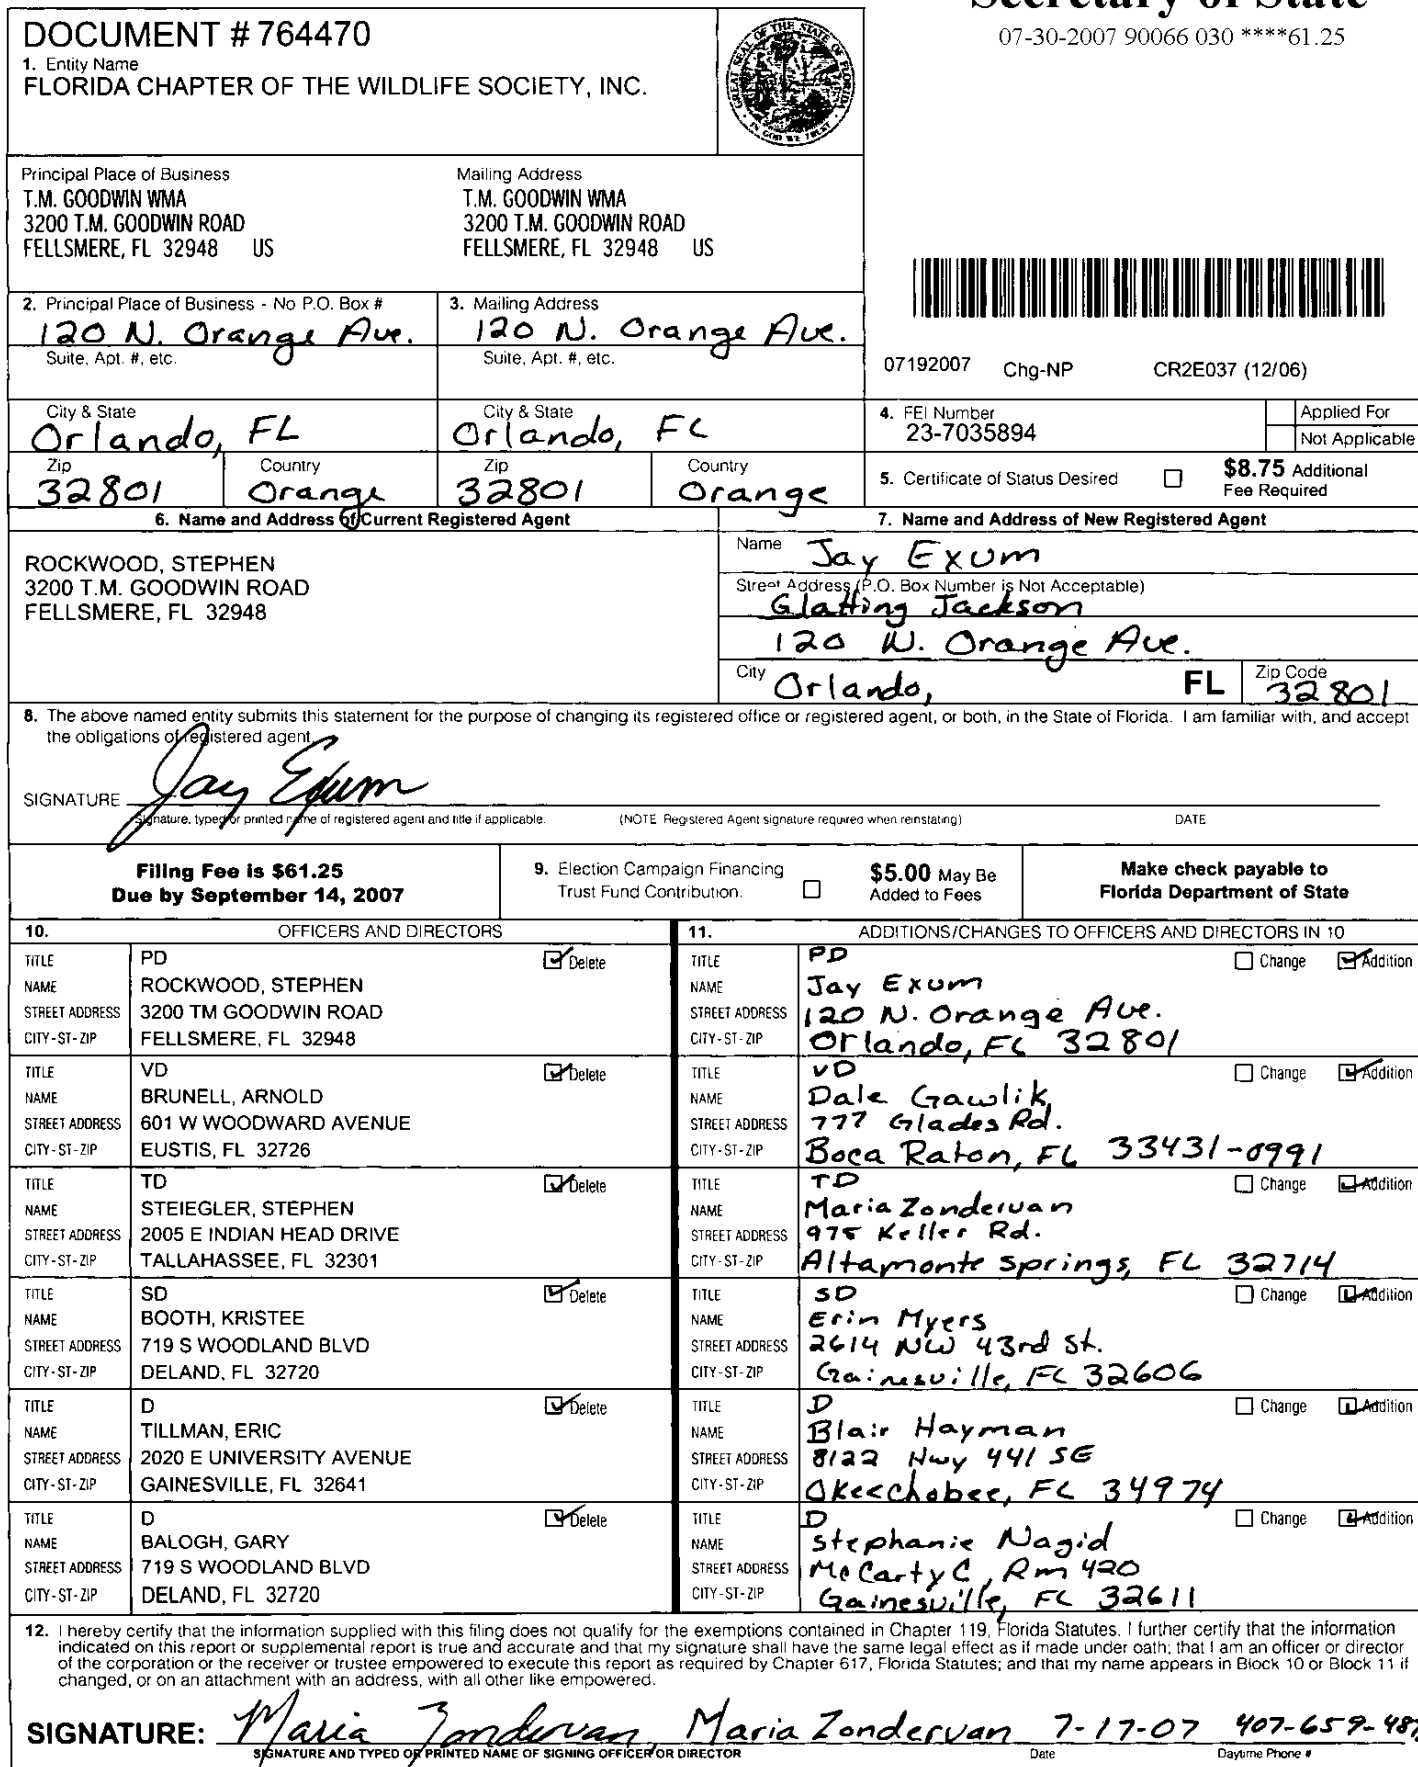 Secretary of State
07-30-2007 90066 030 ****61.25
DOCUMENT # 764470
1. Entity Name
FLORIDA CHAPTER OF THE WILDLIFE SOCIETY, INC.
GREAT SEAL OF THE STATE OF FLORIDA
IN GOD WE TRUST
Principal Place of Business
T.M. GOODWIN WMA
3200 T.M. GOODWIN ROAD
FELLSMERE, FL 32948 US
Mailing Address
T.M. GOODWIN WMA
3200 T.M. GOODWIN ROAD
FELLSMERE, FL 32948 US
2. Principal Place of Business - No P.O. Box #
120 N. Orange Ave.
Suite, Apt. #, etc.
3. Mailing Address
120 N. Orange Ave.
Suite, Apt. #, etc.
07192007 Chg-NP CR2E037 (12/06)
City & State
Orlando, FL
City & State
Orlando, FL
4. FEI Number
23-7035894
Applied For
Not Applicable
Zip
32801
Country
Orange
Zip
32801
Country
Orange
5. Certificate of Status Desired
$8.75 Additional
Fee Required
6. Name and Address of Current Registered Agent
ROCKWOOD, STEPHEN
3200 T.M. GOODWIN ROAD
FELLSMERE, FL 32948
7. Name and Address of New Registered Agent
Name Jay Exum
Street Address (P.O. Box Number is Not Acceptable)
Glatting Jackson
120 N. Orange Ave.
City Orlando, FL Zip Code 32801
8. The above named entity submits this statement for the purpose of changing its registered office or registered agent, or both, in the State of Florida. I am familiar with, and accept
the obligations of registered agent
SIGNATURE Jay Exum
Signature, typed or printed name of registered agent and title if applicable. (NOTE Registered Agent signature required when reinstating) DATE
Filing Fee is $61.25
Due by September 14, 2007
9. Election Campaign Financing
Trust Fund Contribution.
$5.00 May Be
Added to Fees
Make check payable to
Florida Department of State
10. OFFICERS AND DIRECTORS
TITLE PD Delete
NAME ROCKWOOD, STEPHEN
STREET ADDRESS 3200 TM GOODWIN ROAD
CITY-ST-ZIP FELLSMERE, FL 32948
TITLE VD Delete
NAME BRUNELL, ARNOLD
STREET ADDRESS 601 W WOODWARD AVENUE
CITY-ST-ZIP EUSTIS, FL 32726
TITLE TD Delete
NAME STEIEGLER, STEPHEN
STREET ADDRESS 2005 E INDIAN HEAD DRIVE
CITY-ST-ZIP TALLAHASSEE, FL 32301
TITLE SD Delete
NAME BOOTH, KRISTEE
STREET ADDRESS 719 S WOODLAND BLVD
CITY-ST-ZIP DELAND, FL 32720
TITLE D Delete
NAME TILLMAN, ERIC
STREET ADDRESS 2020 E UNIVERSITY AVENUE
CITY-ST-ZIP GAINESVILLE, FL 32641
TITLE D Delete
NAME BALOGH, GARY
STREET ADDRESS 719 S WOODLAND BLVD
CITY-ST-ZIP DELAND, FL 32720
11. ADDITIONS/CHANGES TO OFFICERS AND DIRECTORS IN 10
TITLE PD Change Addition
NAME Jay Exum
STREET ADDRESS 120 N. Orange Ave.
CITY-ST-ZIP Orlando, FL 32801
TITLE VD Change Addition
NAME Dale Gawlik
STREET ADDRESS 777 Glades Rd.
CITY-ST-ZIP Boca Raton, FL 33431-0991
TITLE TD Change Addition
NAME Maria Zondervan
STREET ADDRESS 975 Keller Rd.
CITY-ST-ZIP Altamonte Springs, FL 32714
TITLE SD Change Addition
NAME Erin Myers
STREET ADDRESS 2614 NW 43rd St.
CITY-ST-ZIP Gainesville, FL 32606
TITLE D Change Addition
NAME Blair Hayman
STREET ADDRESS 8122 Hwy 441 SE
CITY-ST-ZIP Okeechobee, FL 34974
TITLE D Change Addition
NAME Stephanie Nagid
STREET ADDRESS McCarty C, Rm 420
CITY-ST-ZIP Gainesville, FL 32611
12. I hereby certify that the information supplied with this filing does not qualify for the exemptions contained in Chapter 119, Florida Statutes. I further certify that the information
indicated on this report or supplemental report is true and accurate and that my signature shall have the same legal effect as if made under oath; that I am an officer or director
of the corporation or the receiver or trustee empowered to execute this report as required by Chapter 617, Florida Statutes; and that my name appears in Block 10 or Block 11 if
changed, or on an attachment with an address, with all other like empowered.
SIGNATURE: Maria Zondervan Maria Zondervan 7-17-07 407-659-48
SIGNATURE AND TYPED OR PRINTED NAME OF SIGNING OFFICER OR DIRECTOR Date Daytime Phone #